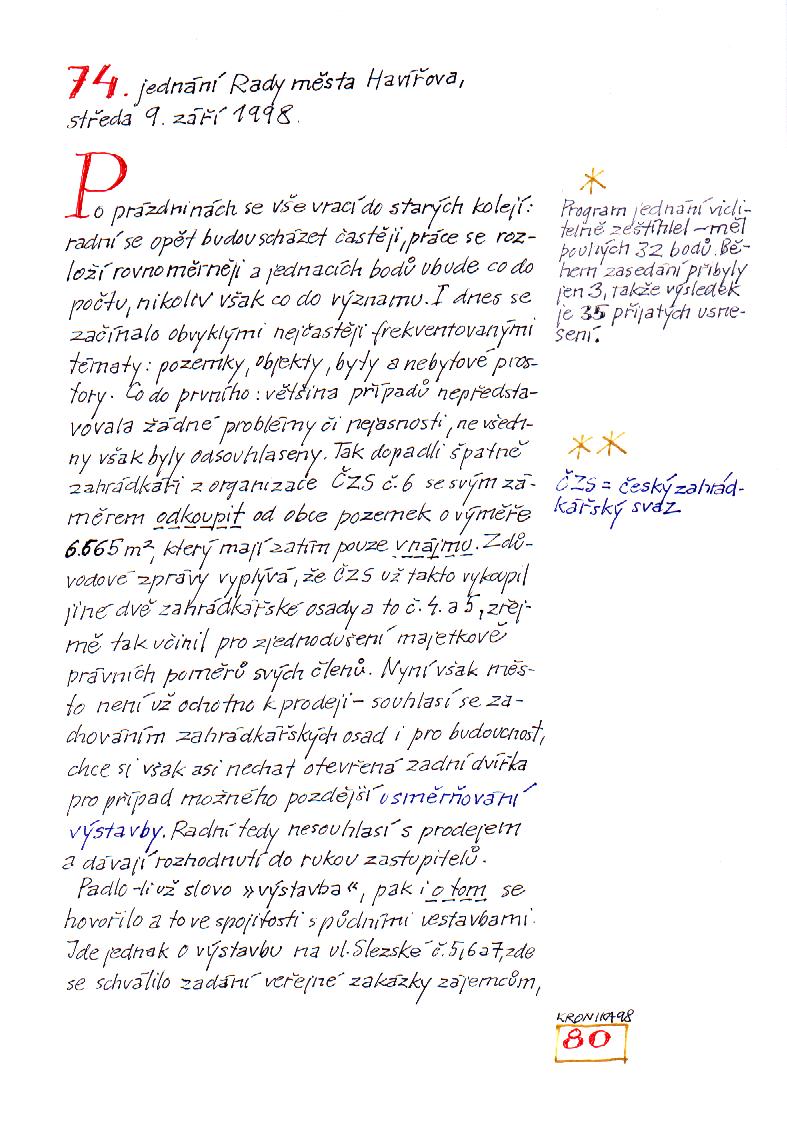 74. jednání Rady města Havířova,
středa 9. září 1998.
Po prázdninách se vše vrací do starých kolejí:
radní se opět budou scházet častěji, práce se roz-
loží rovnoměrněji a jednacích bodů ubude co do
počtu, nikoliv však co do významu. I dnes se
začínalo obvyklými nejčastěji frekventovanými
tématy: pozemky, objekty, byty a nebytové pros-
tory. Co do prvního: většina případů nepředsta-
vovala žádné problémy či nejasnosti, ne všech-
ny však byly odsouhlaseny. Tak dopadli špatně
zahrádkáři z organizace ČZS č. 6 se svým zá-
měrem odkoupit od obce pozemek o výměře
6.565 m², který mají zatím pouze v nájmu. Z dů-
vodové zprávy vyplývá, že ČZS už takto vykoupil
jiné dvě zahrádkářské osady a to č. 4. a 5, zřej-
mě tak učinil pro zjednodušení majetkově
právních poměrů svých členů. Nyní však měs-
to není už ochotno k prodeji – souhlasí se za-
chováním zahrádkářských osad i pro budoucnost,
chce si však asi nechat otevřená zadní dvířka
pro případ možného pozdější usměrňování
výstavby. Radní tedy nesouhlasí s prodejem
a dávají rozhodnutí do rukou zastupitelů.
Padlo-li už slovo »výstavba«, pak i o tom se
hovořilo a to ve spojitosti s půdními vestavbami.
Jde jednak o výstavbu na ul. Slezské č. 5, 6 a 7, zde
se schválilo zadání veřejné zakázky zájemcům,
*
Program jednání vidi-
telně zeštíhlel – měl
pouhých 32 bodů. Bě-
hem zasedání přibyly
jen 3, takže výsledek
je 35 přijatých usne-
sení.
**
ČZS = český zahrád-
kářský svaz
KRONIKA 98
80